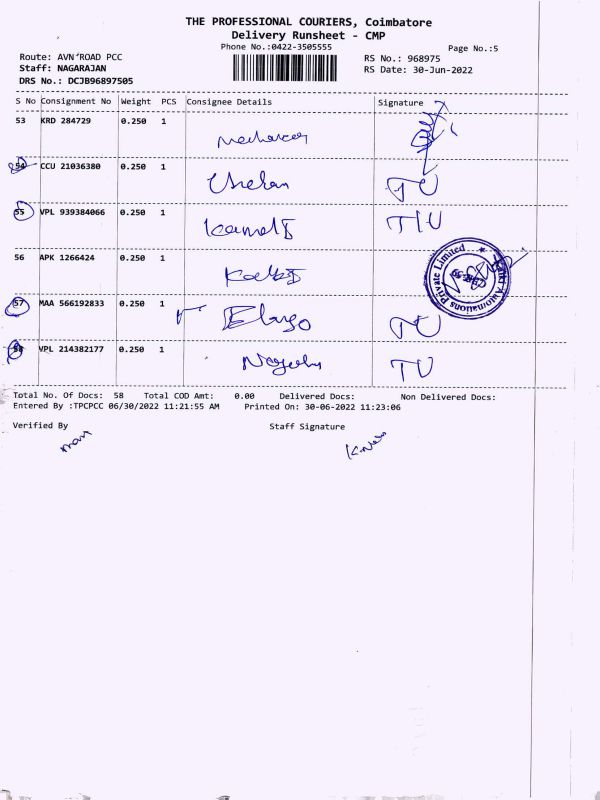 THE PROFESSIONAL COURIERS, Coimbatore
Delivery Runsheet - CMP
Phone No.:0422-3505555
Page No.:5
Route: AVN ROAD PCC
RS No.: 968975
Staff: NAGARAJAN
RS Date: 30-Jun-2022
DRS No.: DCJB96897505
S No Consignment No Weight PCS Consignee Details Signature
53 KRD 284729 0.250 1
54 CCU 21036380 0.250 1
TU
55 VPL 939384066 0.250 1
TU
56 APK 1266424 0.250 1
Automations Private Limited
57 MAA 566192833 0.250 1
TU
58 VPL 214382177 0.250 1
TU
Total No. Of Docs: 58 Total COD Amt: 0.00 Delivered Docs: Non Delivered Docs:
Entered By :TPCPCC 06/30/2022 11:21:55 AM Printed On: 30-06-2022 11:23:06
Verified By Staff Signature